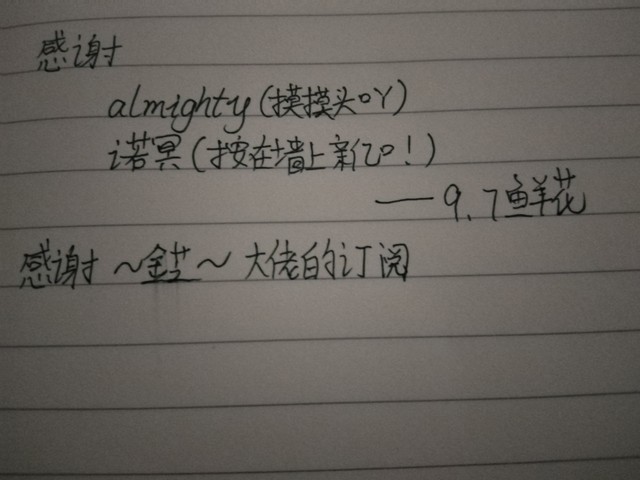 感谢
almighty(摸摸头吖)
诺冥(按在墙上亲亿口!)
——9.7鲜花
感谢 ~金芝~ 大佬的订阅